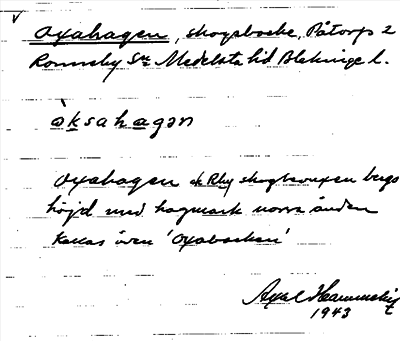 v
Oxahagen, skogsbacke, Påtorp 2
Ronneby Sn Medelsta hd Blekinge l.
òksahagən
Oxahagen skogbevuxen bergs
höjd med hagmark norra änden
Kallas även 'Oxabacken'
Axel
1943